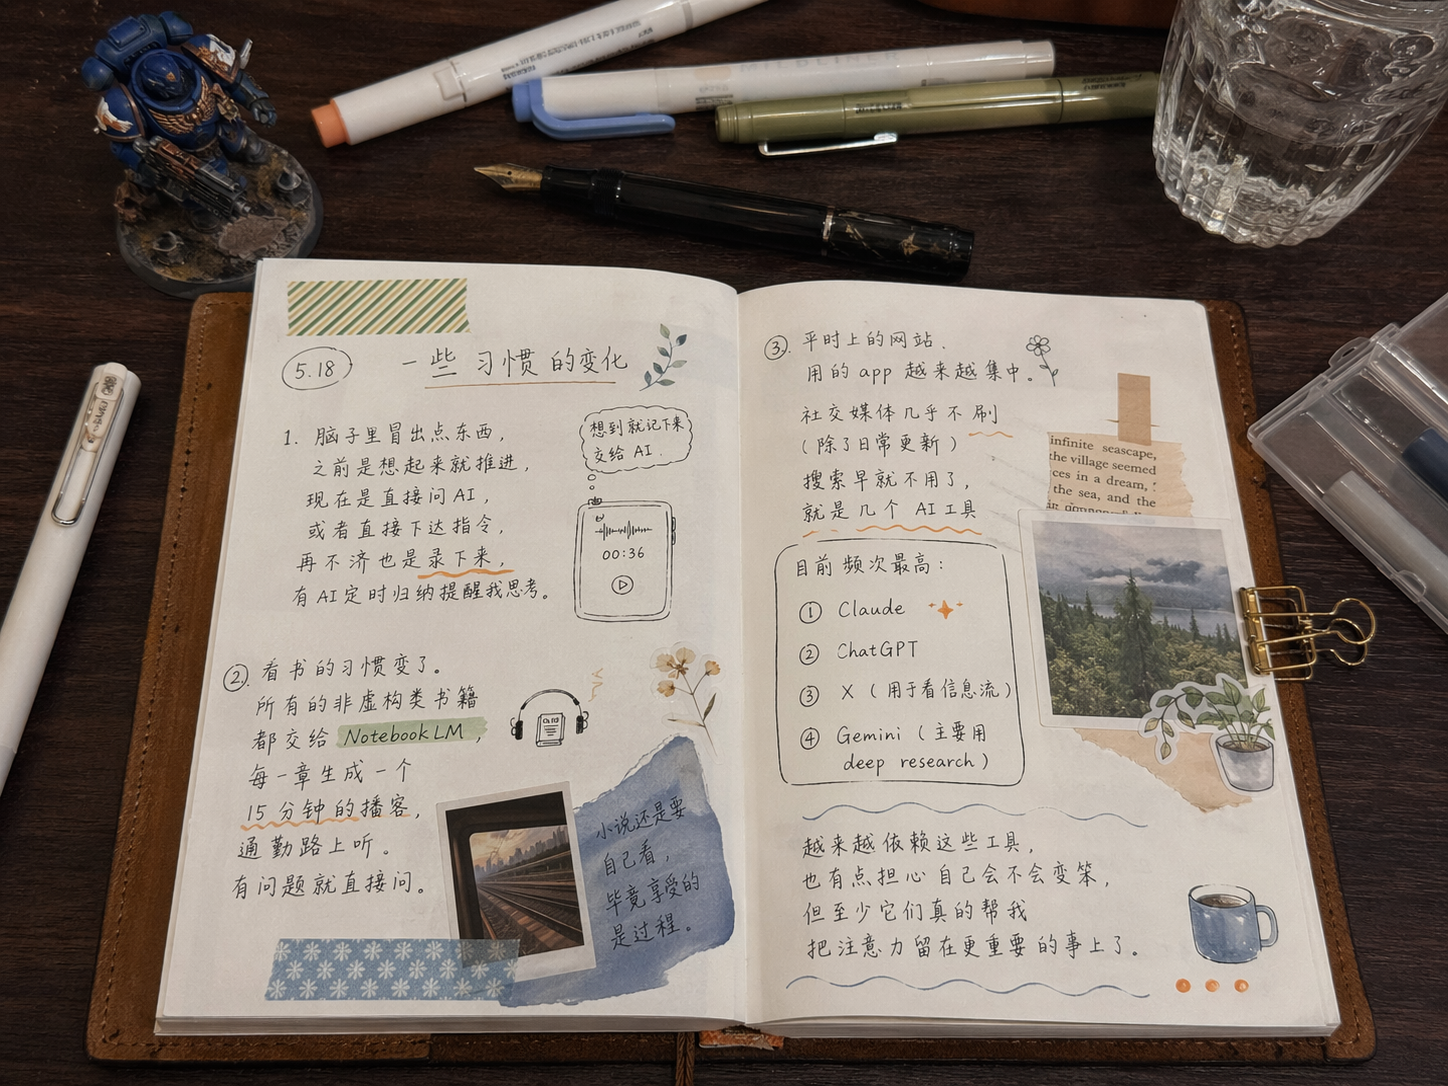 MILDLINER
5.18
一些习惯的变化
1. 脑子里冒出点东西，
之前是想起来就推进，
现在是直接问AI，
或者直接下达指令，
再不济也是录下来，
有AI定时归纳提醒我思考。
想到就记下来
交给 AI.
00:36
②. 看书的习惯变了。
所有的非虚构类书籍
都交给 NotebookLM，
每一章生成一个
15分钟的播客，
通勤路上听。
有问题就直接问。
小说还是要
自己看，
毕竟享受的
是过程。
③. 平时上的网站、
用的 app 越来越集中。
社交媒体几乎不刷
（除了日常更新）
搜索早就不用了，
就是几个 AI工具
infinite seascape,
the village seemed
ces in a dream,
the sea, and the
目前频次最高：
① Claude
② ChatGPT
③ X（用于看信息流）
④ Gemini（主要用
deep research）
越来越依赖这些工具，
也有点担心自己会不会变笨，
但至少它们真的帮我
把注意力留在更重要的事上了。